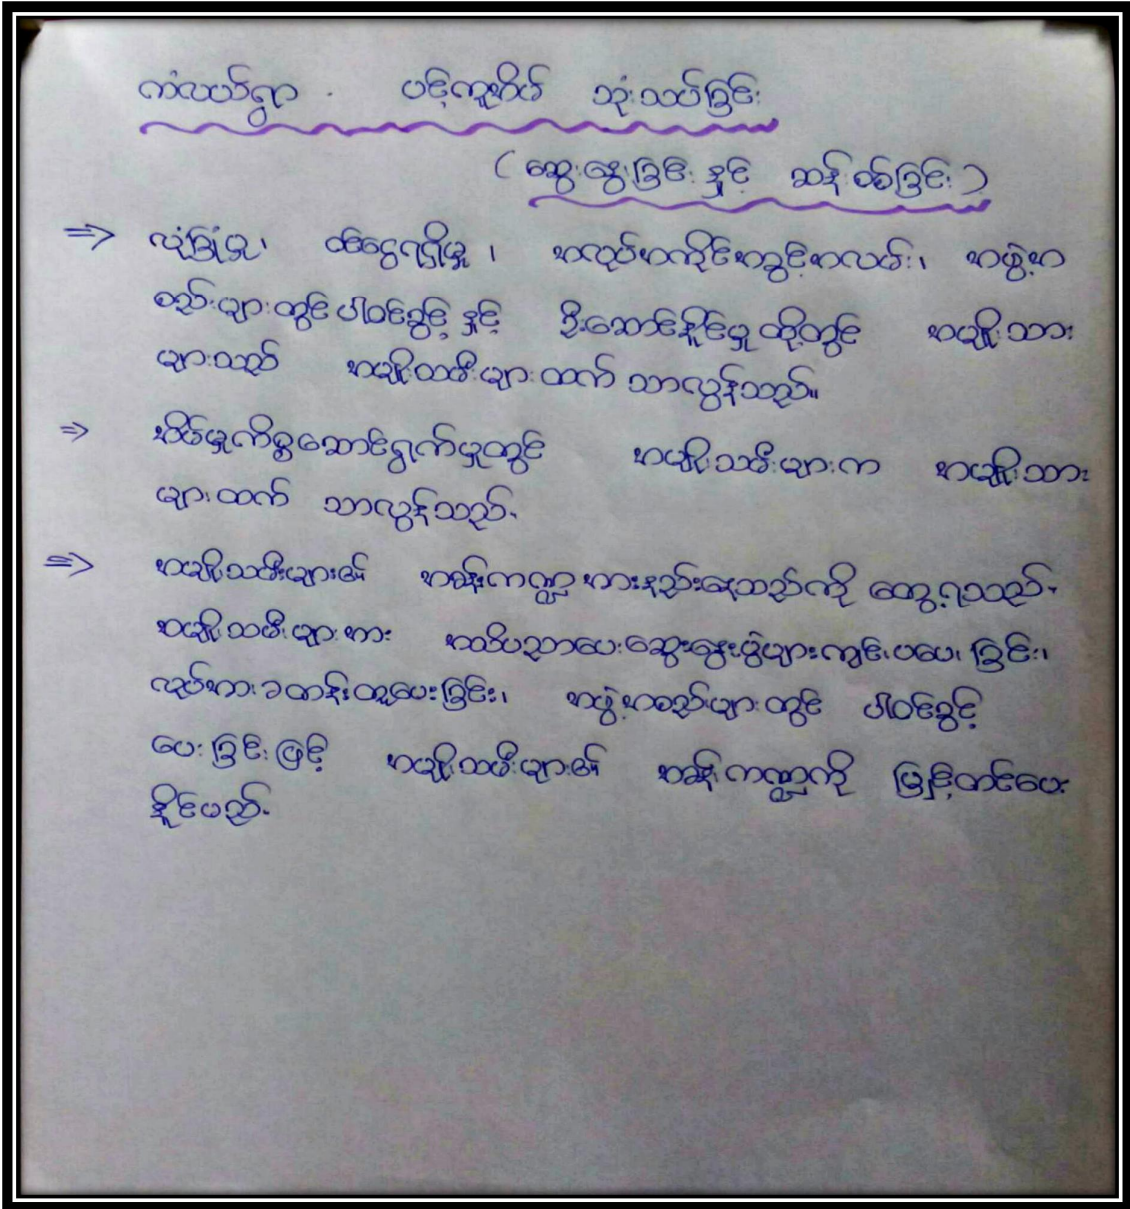 ကံလယ်ရွာ . ပင့်ကူအိမ် သုံးသပ်ခြင်း
(ဆွေးနွေးခြင်း နှင့် ဆန်းစစ်ခြင်း)
⇒ လုံခြုံမှု၊ ဝင်ငွေရရှိမှု၊ အလုပ်အကိုင်အခွင့်အလမ်း၊ အဖွဲ့အ
စည်းများတွင် ပါဝင်ခွင့် နှင့် ဦးဆောင်နိုင်မှု တို့တွင် အမျိုးသား
များသည် အမျိုးသမီးများထက် သာလွန်သည်။
⇒ အိမ်မှုကိစ္စဆောင်ရွက်မှုတွင် အမျိုးသမီးများက အမျိုးသား
များထက် သာလွန်သည်.
⇒ အမျိုးသမီးများ၏ အခန်းကဏ္ဍ အားနည်းနေသည်ကို တွေ့ရသည်.
အမျိုးသမီးများအား အသိပညာပေးဆွေးနွေးပွဲများကျင်းပပေးခြင်း၊
လုပ်အားခတန်းတူပေးခြင်း၊ အဖွဲ့အစည်းများတွင် ပါဝင်ခွင့်
ပေးခြင်းဖြင့် အမျိုးသမီးများ၏ အခန်းကဏ္ဍကို မြှင့်တင်ပေး
နိုင်မည်.